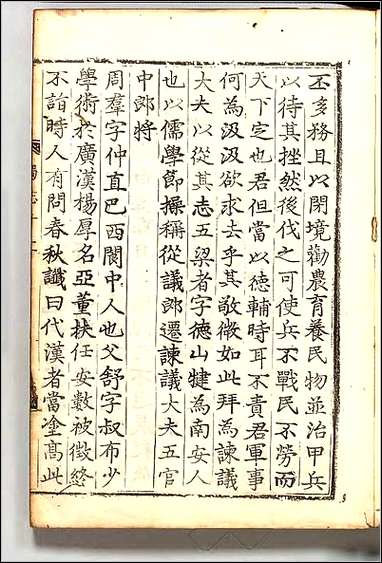 丕多務且以閉境勸農育養民物並治甲兵
以待其挫然後伐之可使兵不戰民不勞而
天下定也君但當以德輔時耳不責君軍事
何為汲汲欲求去乎其敬微如此拜為諫議
大夫以從其志五梁者字德山犍為南安人
也以儒學節操稱從議郎遷諫議大夫五官
中郎將
周羣字仲直巴西閬中人也父舒字叔布少
學術於廣漢楊厚名亞董扶任安數被徵終
不詣時人有問春秋讖曰代漢者當塗高此
蜀志十二